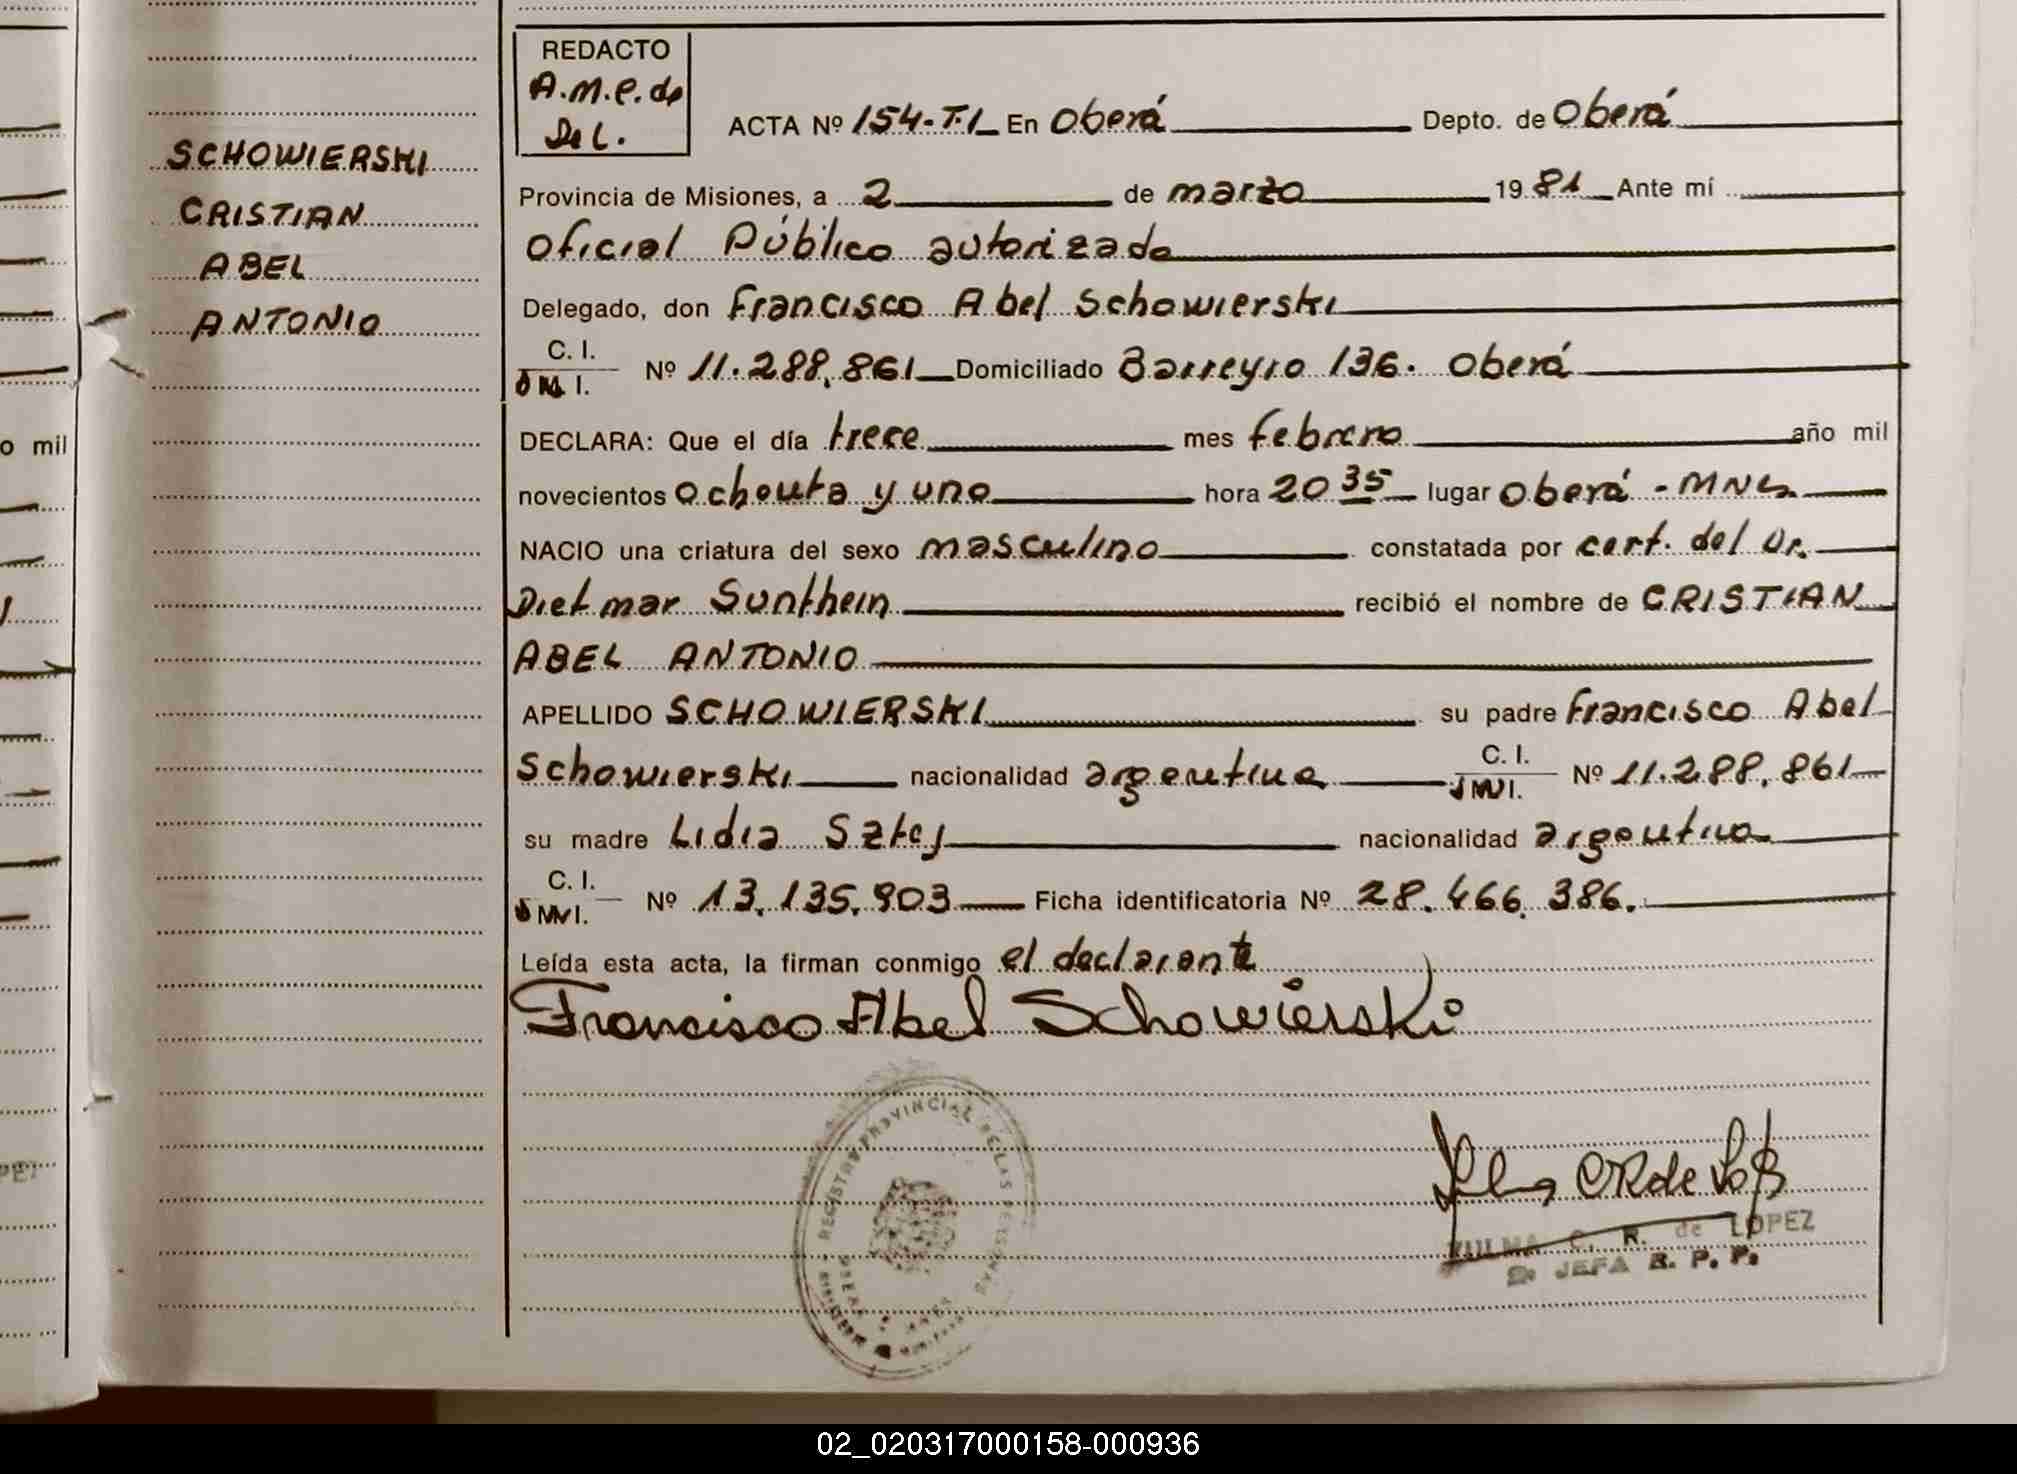 REDACTO
A.M.P. de
De L.
SCHOWIERSKI
CRISTIAN
ABEL
ANTONIO
ACTA Nº 154-T.I En Oberá Depto. de Oberá
Provincia de Misiones, a 2 de marzo 1981 Ante mí
Oficial Público autorizado
Delegado, don Francisco Abel Schowierski
C. I.
Nº 11.288.861 Domiciliado Barreyro 136. Oberá
DECLARA: Que el día trece mes febrero año mil
novecientos ochenta y uno hora 20 35 lugar Oberá - MNES
NACIO una criatura del sexo masculino constatada por cert. del Dr.
Dietmar Sunthein recibió el nombre de CRISTIAN
ABEL ANTONIO
APELLIDO SCHOWIERSKI su padre Francisco Abel
Schowierski nacionalidad argentina C. I. Nº 11.288.861
su madre Lidia Sztej nacionalidad argentina
C. I. Nº 13.135.903 Ficha identificatoria Nº 28.466.386.
Leída esta acta, la firman conmigo el declarante
Francisco Abel Schowierski
REGISTRO PROVINCIAL DE LAS PERSONAS
ZULMA C. R. de LOPEZ
JEFA R. P. P.
o mil
02_020317000158-000936